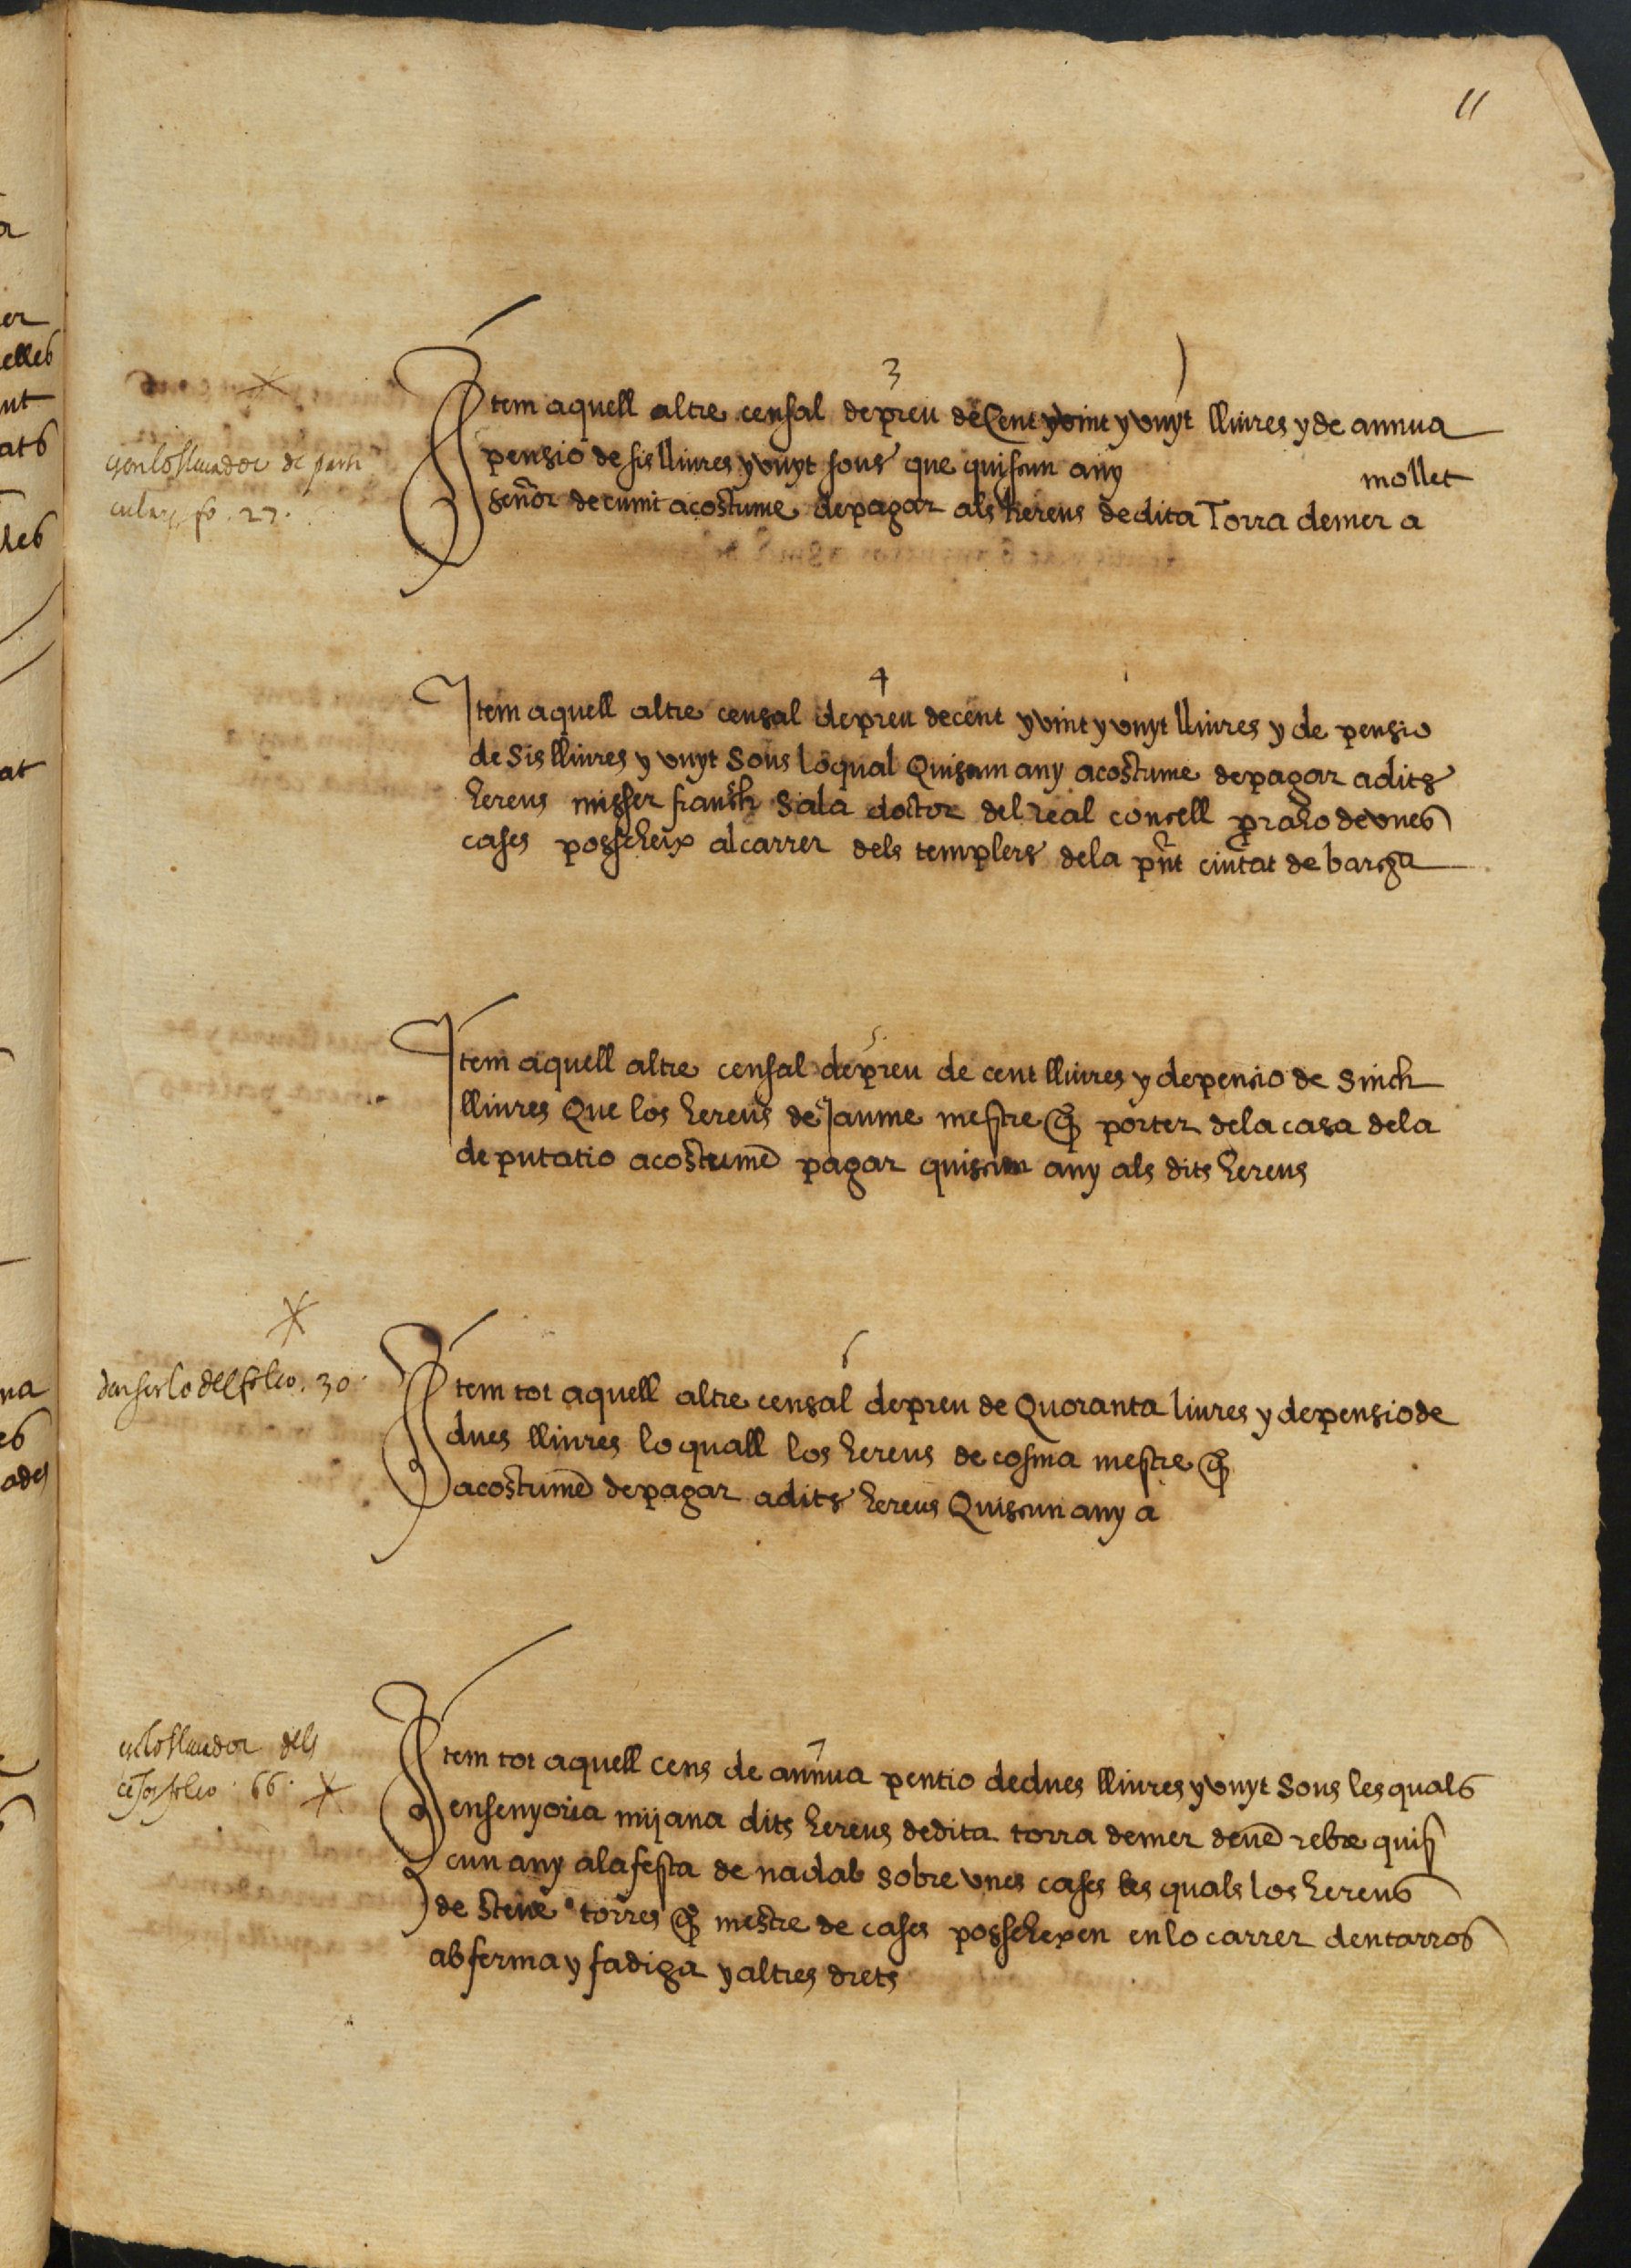 11
3
Item aquell altre censal de preu de Cent y vint y vuyt lliures y de annua
pensio de sis lliures y vuyt sous que quiscun any mollet
señor de cunit acostume de pagar als hereus de dita Torra demer a
fo. 27.
4
Item aquell altre censal de preu de cent y vint y vuyt lliures y de pensio
de Sis lliures y vuyt Sous lo qual Quiscun any acostume de pagar a dits
hereus misser fransch Sala doctor del real concell p raho de unes
cases posseheix al carrer dels templers de la pnt ciutat de barçª
5
Item aquell altre censal de preu de cent lliures y de pencio de Sinch
lliures Que los hereus de Jaume mestre q̊ porter de la casa de la
deputatio acostumē pagar quiscun any als dits hereus
6
del folio. 30.
Item tot aquell altre censal de preu de Quoranta liures y de pensio de
dues lliures lo quall los hereus de cosma mestre q̊
acostumē de pagar a dits hereus Quiscun any a
7
dels
folio. 66.
Item tot aquell cens de annua pentio de dues lliures y vuyt Sous les quals
en senyoria mijana dits hereus de dita torra demer deuē rebre quis
cun any a la festa de nadal sobre unes cases les quals los hereus
de Steue torres q̊ mestre de cases possehexen en lo carrer den tarros
ab ferma y fadiga y altres drets